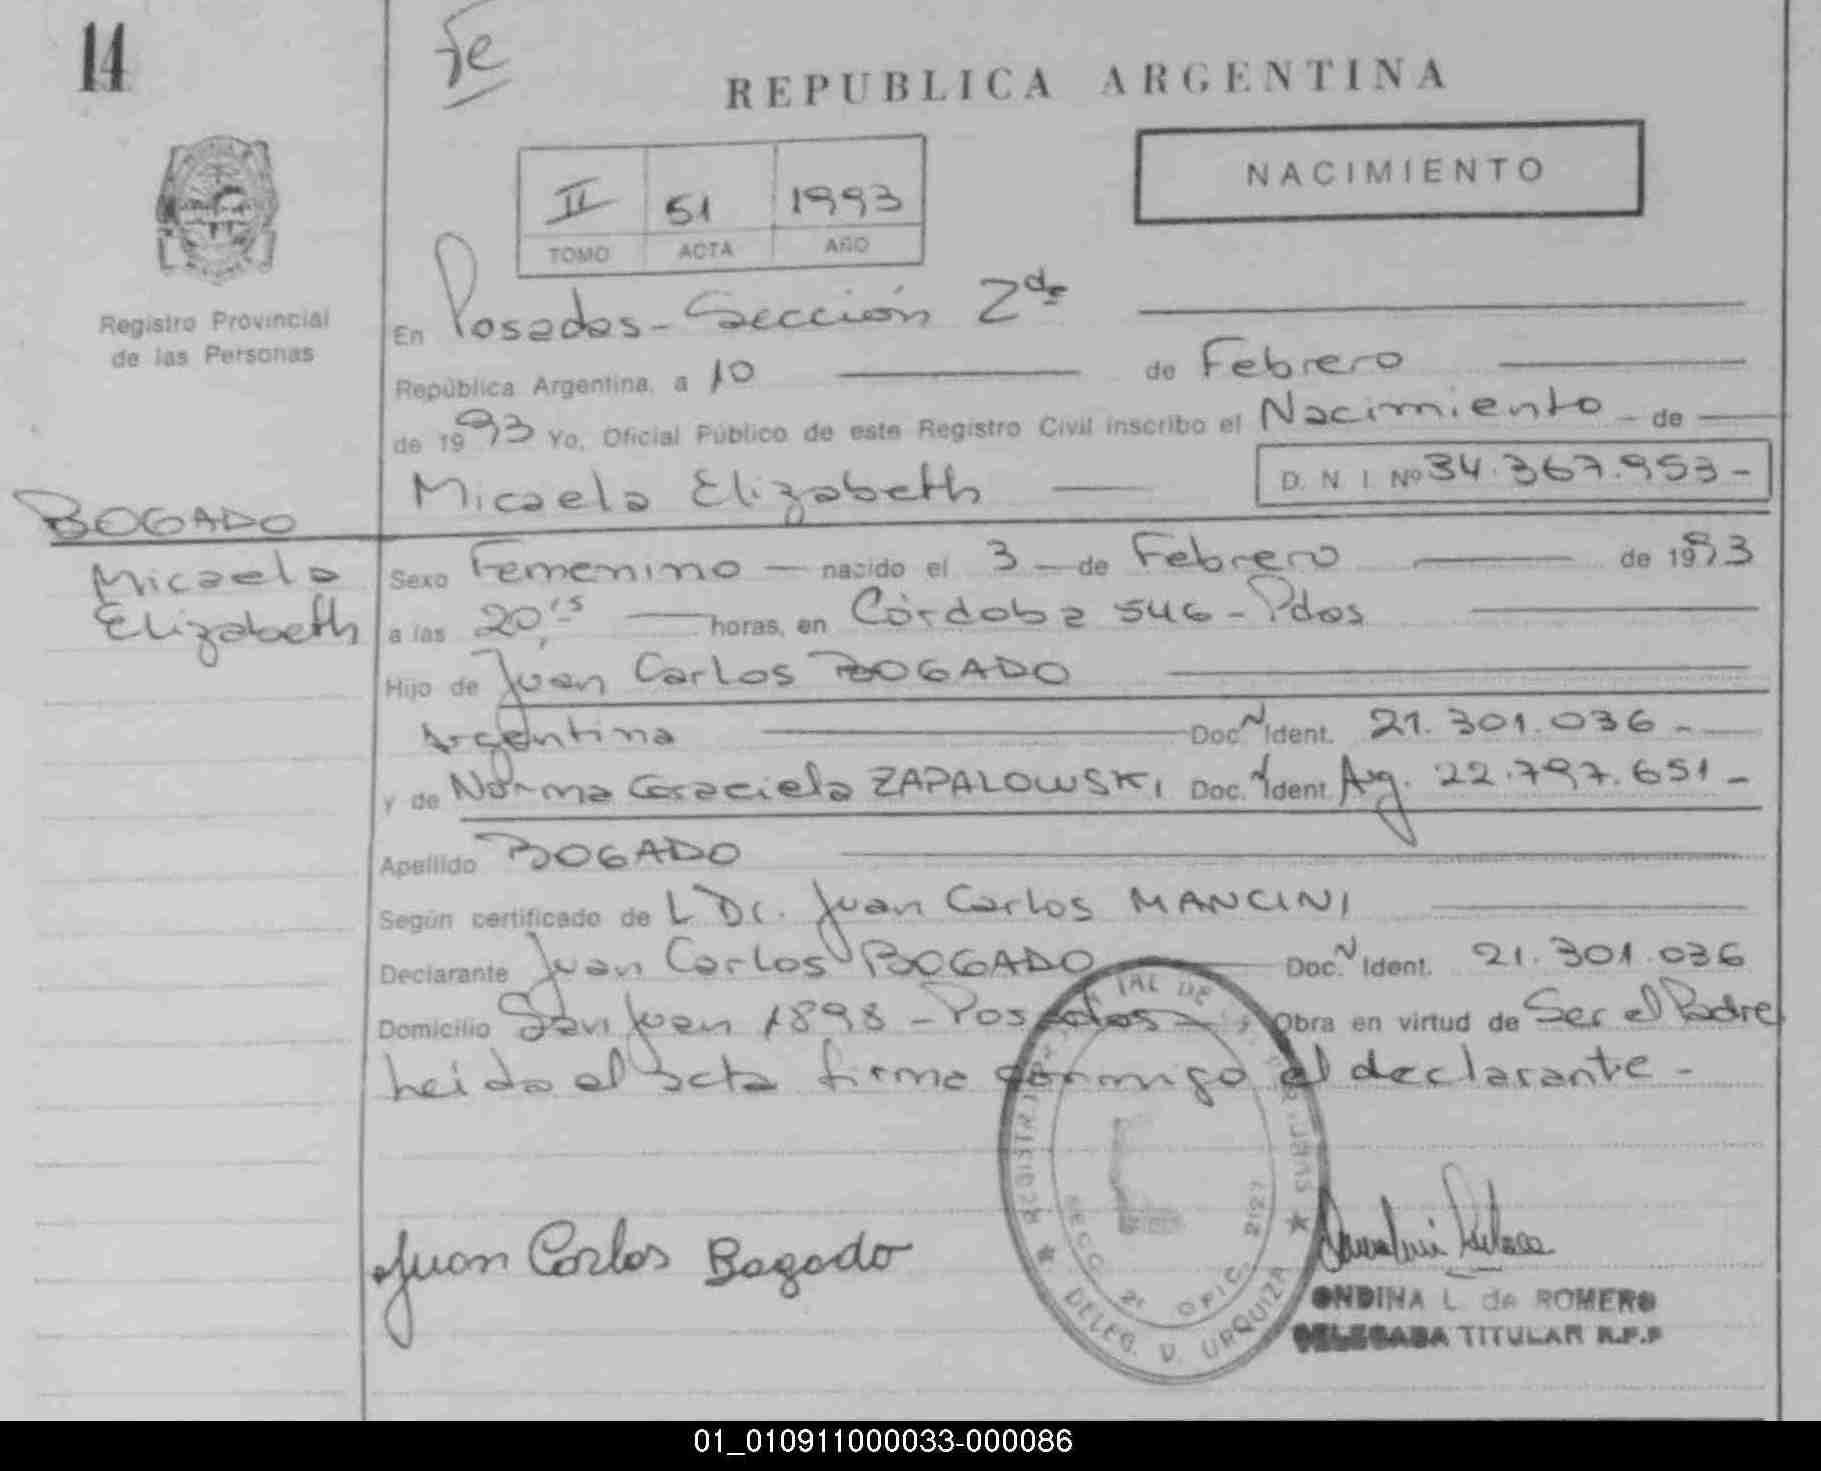 14
fe
REPUBLICA ARGENTINA
NACIMIENTO
II 51 1993
TOMO ACTA AÑO
Registro Provincial
de las Personas
En Posadas - Sección 2da
República Argentina, a 10 de Febrero
de 1993 Yo, Oficial Público de este Registro Civil inscribo el Nacimiento - de
Micaela Elizabeth D. N. I. Nº 34.367.953-
BOGADO
Micaela
Elizabeth
Sexo Femenino - nacido el 3 - de Febrero de 1993
a las 20,15 horas, en Córdoba 546 - Pdas
Hijo de Juan Carlos BOGADO
Argentina Doc. N Ident. 21.301.036-
y de Norma Graciela ZAPALOWSKI Doc. N Ident. Arg. 22.797.651-
Apellido BOGADO
Según certificado de L Dr. Juan Carlos MANCINI
Declarante Juan Carlos BOGADO Doc. N Ident. 21.301.036
Domicilio San Juan 1898 - Posadas - Obra en virtud de Ser el Padre
Leida el acta firma conmigo el declarante -
Juan Carlos Bogado
SECC. 2ª OFIC. 2127
DELEG. V. URQUIZA
ONDINA L. de ROMERO
DELEGADA TITULAR R.P.P
01_010911000033-000086